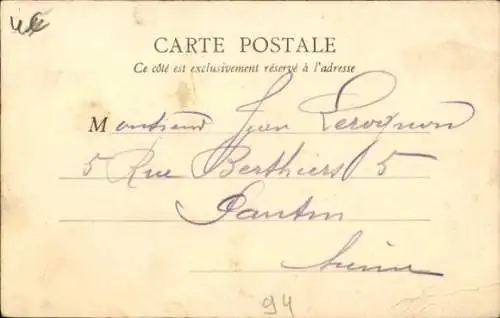 CARTE POSTALE
Ce côté est exclusivement réservé à l'adresse
Monsieur Jean Lerognon
5 Rue Berthiers 5
Pantin
Seine
94